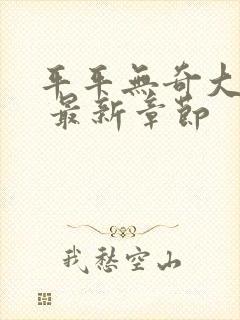 平平無奇大
最新章節
我愁空山